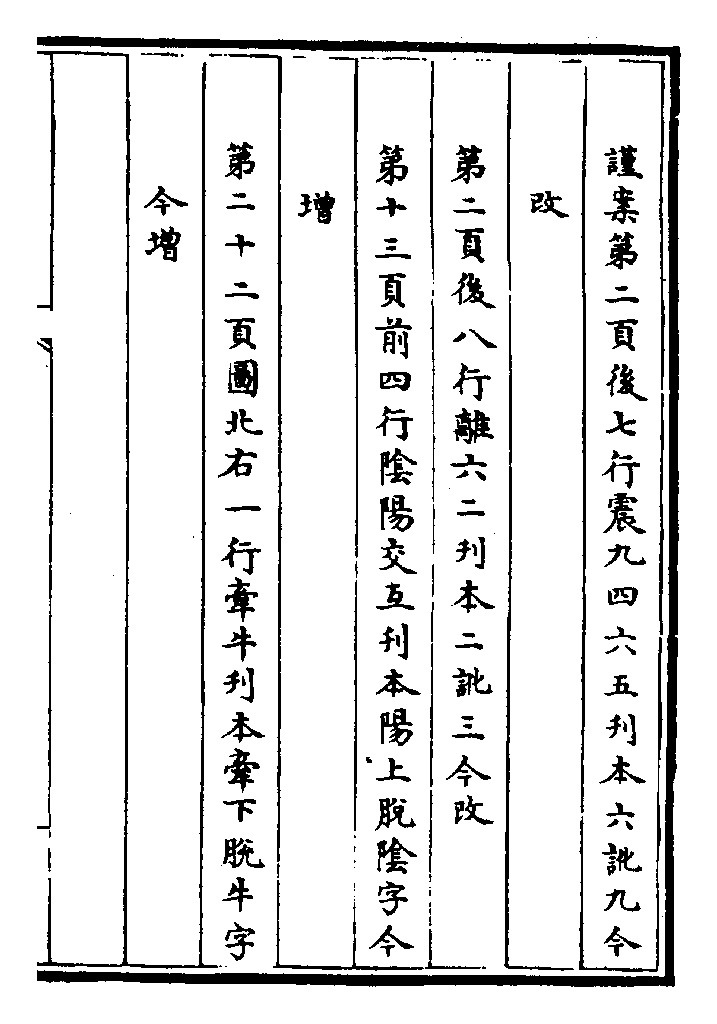 謹案第二頁後七行震九四六五刋本六訛九今
改
第二頁後八行離六二刋本二訛三今改
第十三頁前四行陰陽交互刋本陽上脫陰字今
增
第二十二頁圖北右一行牽牛刋本牽下脫牛字
今增